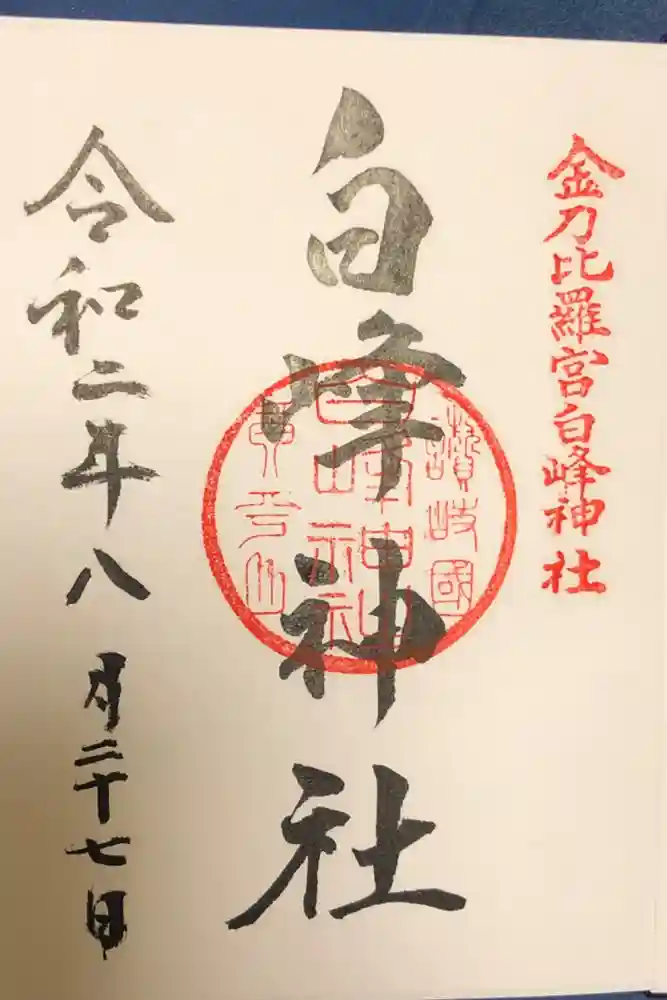 金刀比羅宮白峰神社
白峰神社
讃岐國
白峰神社
令和二年八月二十七日